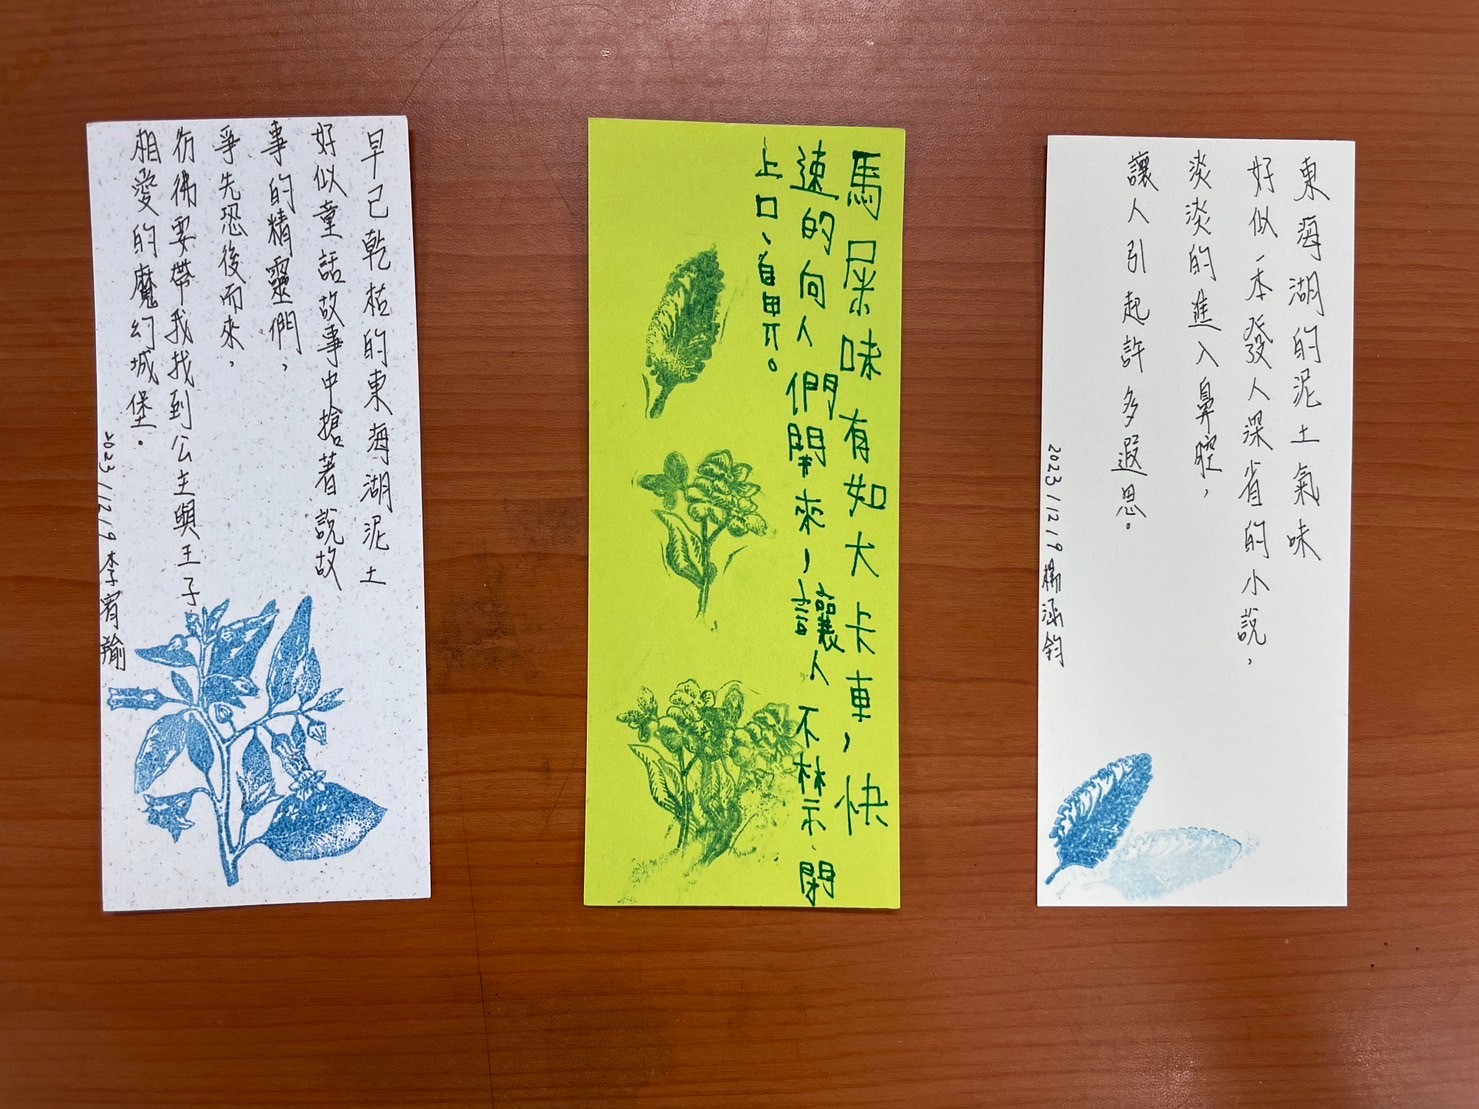 早已乾枯的東海湖泥土
好似童話故事中搶著說故
事的精靈們，
爭先恐後而來，
彷彿要帶我找到公主與王子
相愛的魔幻城堡。
2023/12/9 李宥
馬屎味有如大卡車，快
速的向人們開來，讓人不禁閉
上口、鼻。
東海湖的泥土氣味
好似一本發人深省的小說，
淡淡的進入鼻腔，
讓人引起許多遐思。
2023/12/9 楊涵鈞